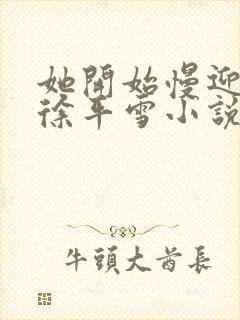 她開始慢迎
徐平雪小說
牛頭大酋長